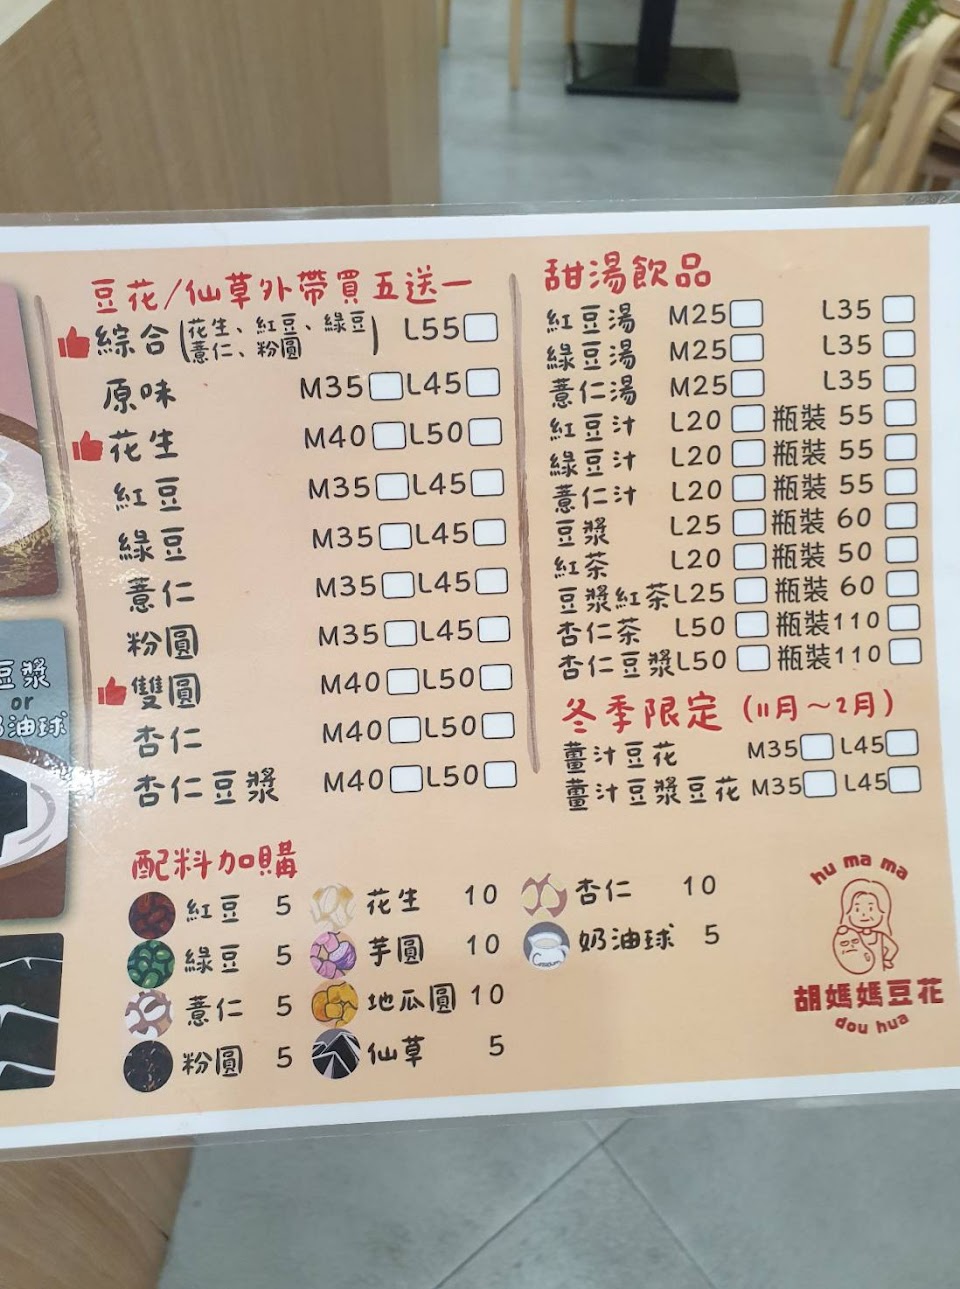 豆花/仙草外帶買五送一
綜合(花生、紅豆、綠豆 L55
薏仁、粉圓)
原味 M35 L45
花生 M40 L50
紅豆 M35 L45
綠豆 M35 L45
薏仁 M35 L45
粉圓 M35 L45
雙圓 M40 L50
杏仁 M40 L50
杏仁豆漿 M40 L50
甜湯飲品
紅豆湯 M25 L35
綠豆湯 M25 L35
薏仁湯 M25 L35
紅豆汁 L20 瓶裝 55
綠豆汁 L20 瓶裝 55
薏仁汁 L20 瓶裝 55
豆漿 L25 瓶裝 60
紅茶 L20 瓶裝 50
豆漿紅茶 L25 瓶裝 60
杏仁茶 L50 瓶裝110
杏仁豆漿 L50 瓶裝110
冬季限定(11月～2月)
薑汁豆花 M35 L45
薑汁豆漿豆花 M35 L45
配料加購
紅豆 5 花生 10 杏仁 10
綠豆 5 芋圓 10 奶油球 5
薏仁 5 地瓜圓 10
粉圓 5 仙草 5
豆漿
or
奶油球
hu ma ma
胡媽媽豆花
dou hua